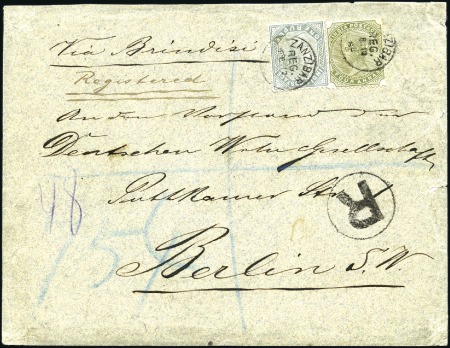 Via Brindisi
Registered
ZANZIBAR
REG.
ZANZIBAR
REG.
An den Vorstand der
Deutschen Witu Gesellschaft
Puttkamer Str. 1
R
48
Berlin S.W.